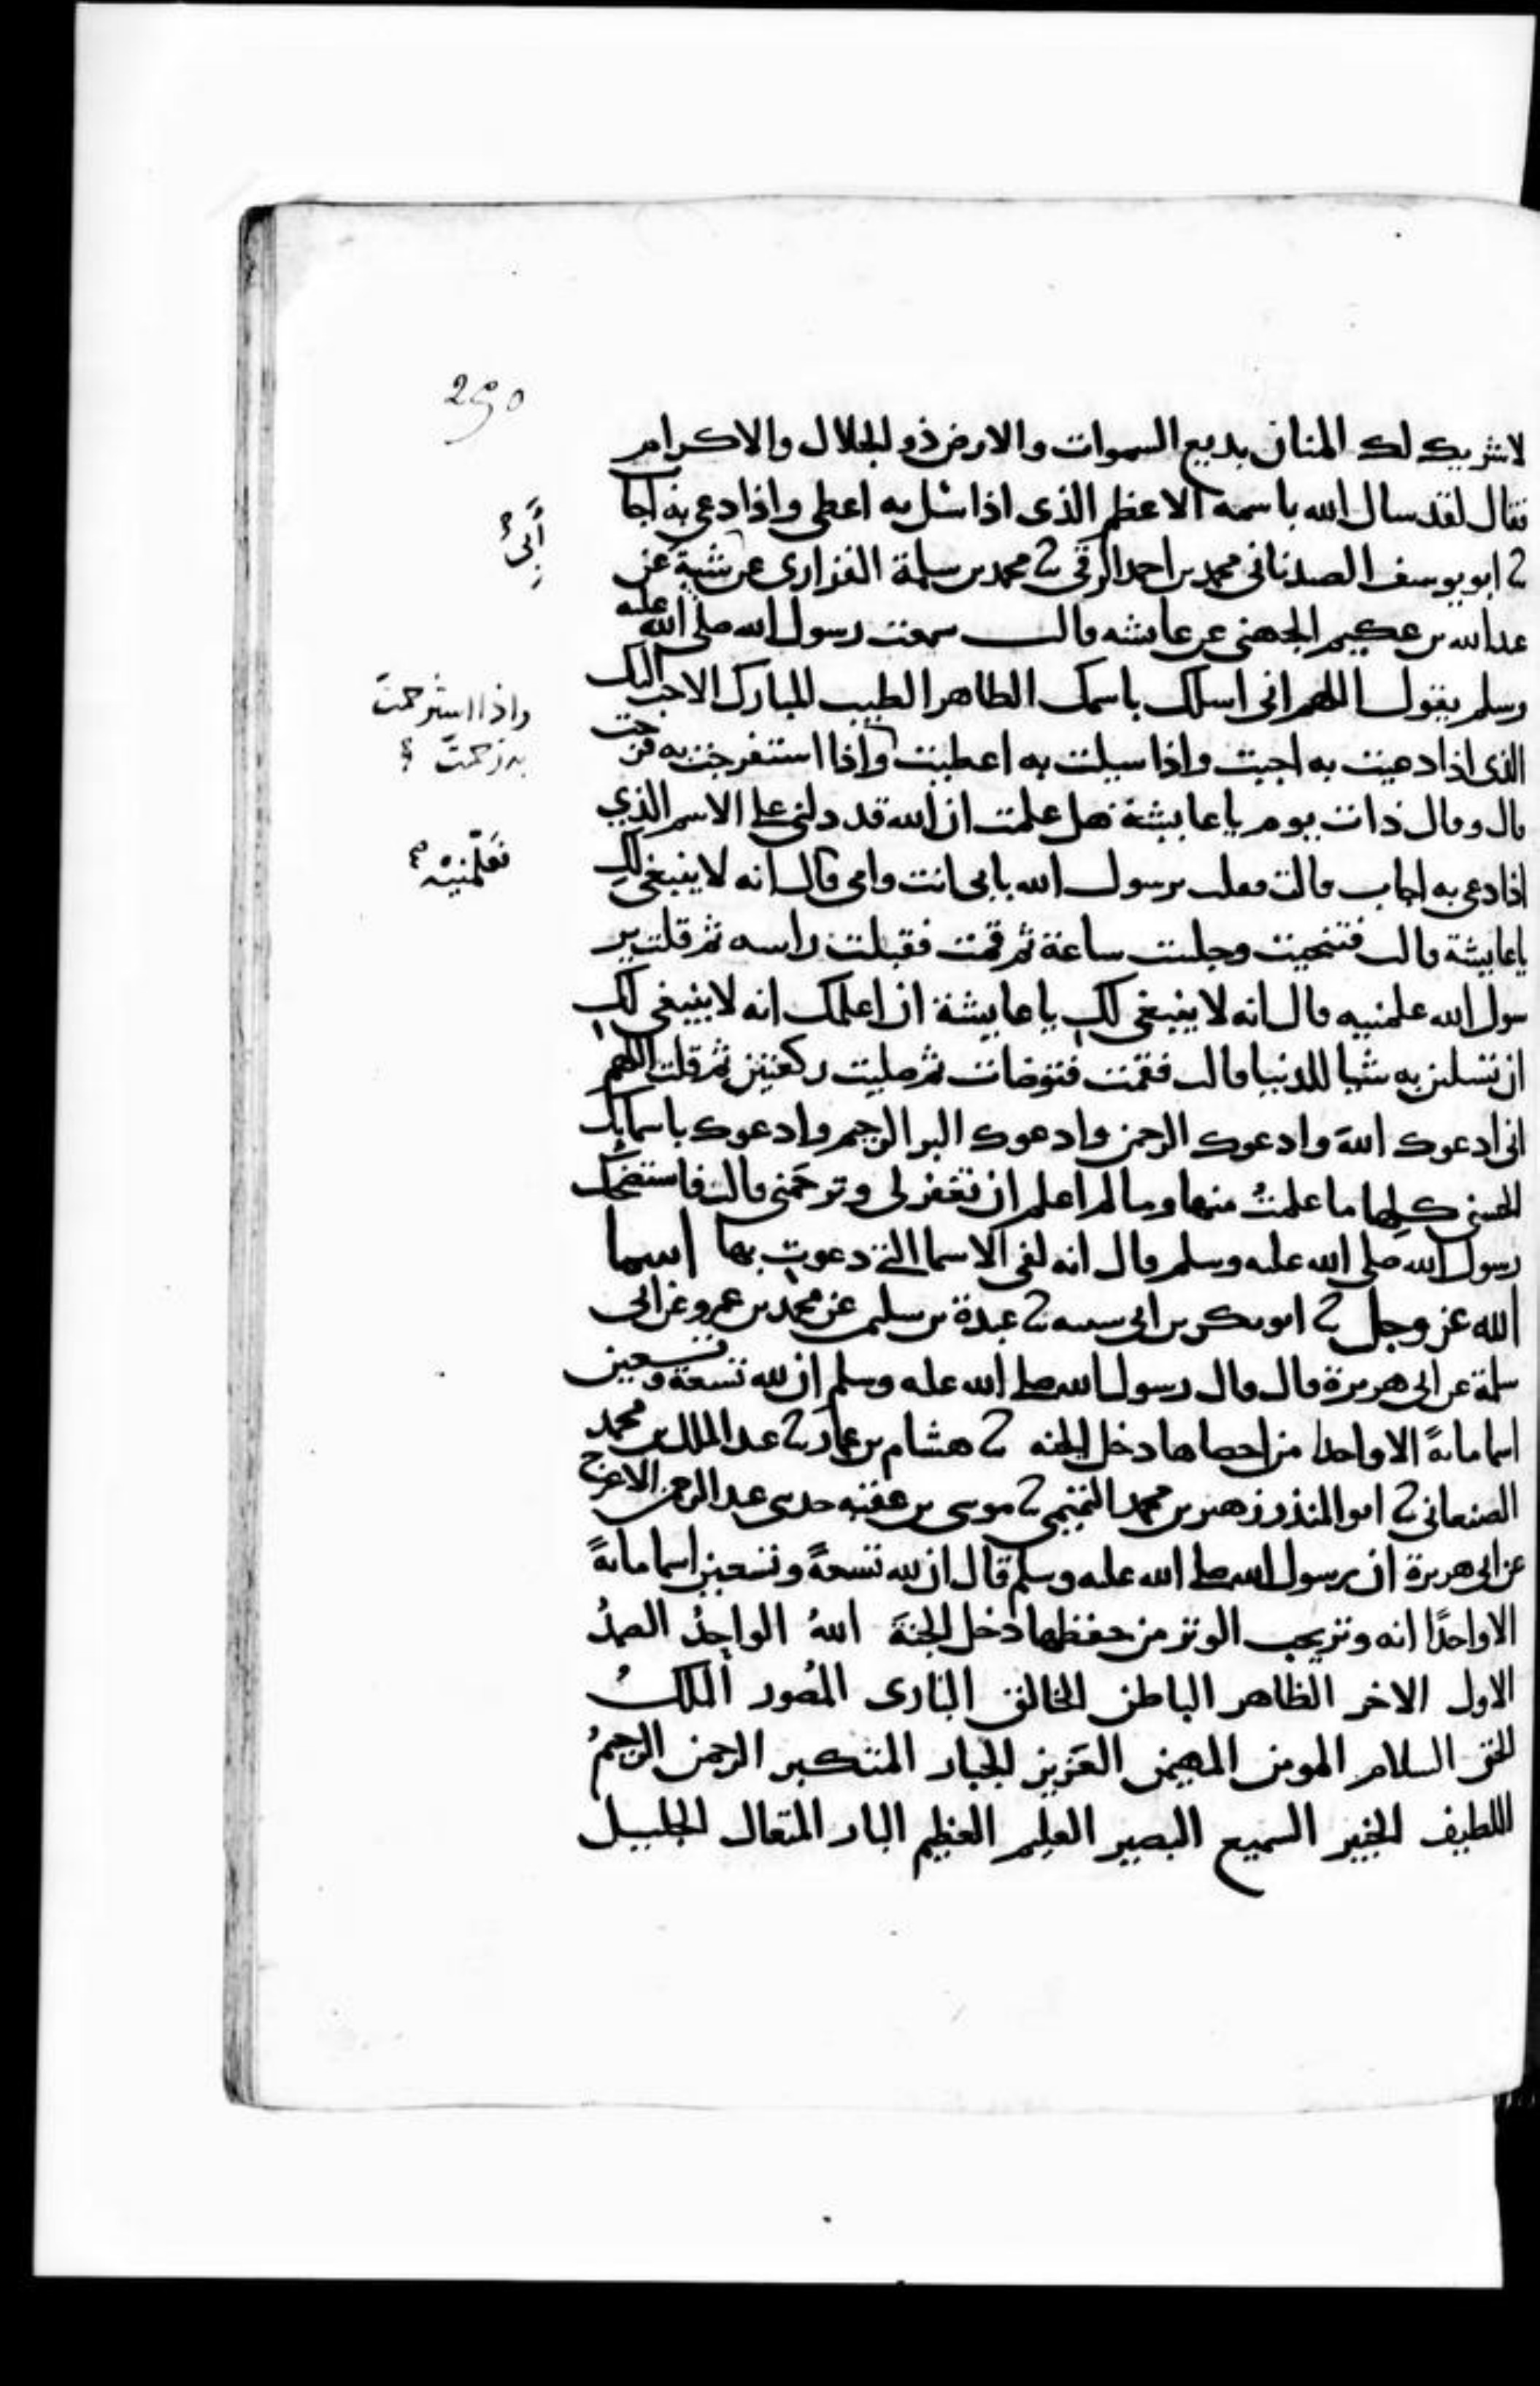 290
لا شريك لك المنان بديع السموات والارض ذو الجلال والاكرام
فقال لقد سال الله باسمه الاعظم الذى اذا سئل به اعطى واذا دعى به اجا
ابو يوسف الصيدنانى محمد بن احمد الرقى ثنا محمد بن سلمة الفزارى عن شيبة عن
أبى
عبد الله بن عكيم الجهنى عن عايشه قالت سمعت رسول الله صلى الله عليه
وسلم يقول اللهم انى اسلك باسمك الطاهر الطيب المبارك الاحب اليك
واذا استرحمت
الذى اذا دعيت به اجبت واذا سيلت به اعطيت واذا استفرجت به فرجت
به رحمت
قال وقال ذات يوم يا عايشة هل علمت ان الله قد دلنى على الاسم الذي
اذا دعى به اجاب قالت فقلت يرسول الله بابى انت وامى قال انه لا ينبغى لك
فعلّمنيه
يا عايشة قالت فتنحيت وجلست ساعة ثم قمت فقبلت راسه ثم قلت ير
سول الله علمنيه قال انه لا ينبغى لك يا عايشة ان اعلمك انه لا ينبغى لك
ان تسلين به شيا للدنيا قالت فقمت فتوضات ثم صليت ركعتين ثم قلت اللهم
انى ادعوك اللهَ وادعوك الرحمن وادعوك البر الرحيم وادعوك باسمايك
الحسنى كلها ما علمتُ منها وما لم اعلم ان تغفر لى وترحمنى قالت فاستضحك
رسول الله صلى الله عليه وسلم وقال انه لفى الاسما التى دعوتِ بها اسما
الله عز وجل ثنا ابو بكر بن ابى شيبه ثنا عبدة بن سليمن عن محمد بن عمرو عن ابى
سلمة عن ابى هريرة قال قال رسول الله صلى الله عليه وسلم ان لله تسعة وتسعين
اسما مايةً الا واحدا من احصاها دخل الجنه ثنا هشام بن عمار ثنا عبد الملك بن محمد
الصنعانى ثنا ابو المنذر زهير بن محمد التميمى ثنا موسى بن عقبه حدثنى عبد الرحمن الاعرج
عن ابى هريرة ان رسول الله صلى الله عليه وسلم قال ان لله تسعةً وتسعين اسما مايةً
الا واحدًا انه وتر يحب الوتر من حفظها دخل الجنةَ اللهُ الواحدُ الصمدُ
الاول الاخر الظاهر الباطن الخالق البارى المُصور الملكُ
الحق السلام المومن المهيمن العَزيز الجبار المتكبر الرحمن الرحيمُ
اللطيف الخبير السميع البصير العليم العظيم البار المتعال الجليل